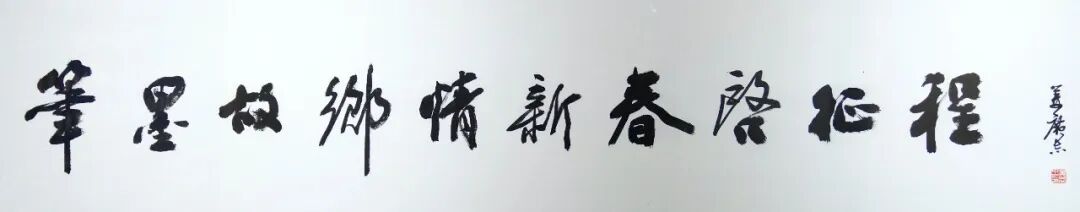 筆墨故鄉情新春啓征程